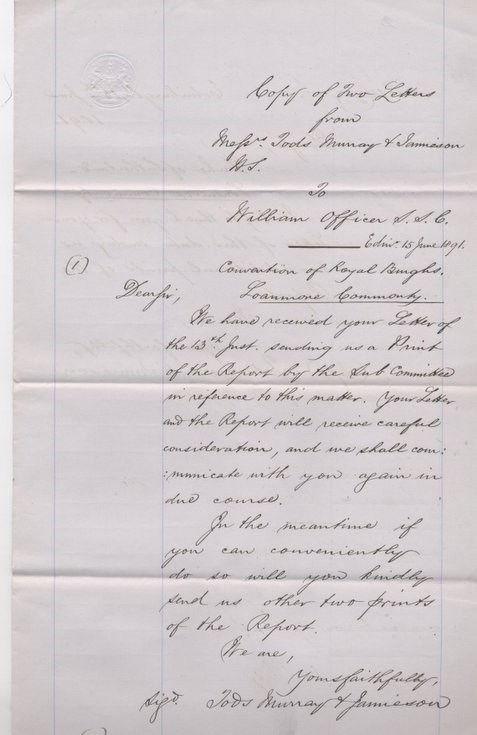 Copy of Two Letters
from
Messrs. Tods Murray & Jamieson
W.S.
To
William Officer S.S.C.
Edinr. 15 June 1891.
(1)
Convention of Royal Burghs.
Dear Sir,
Loanmore Commonty.
We have received your Letter of
the 13th. Inst. sending us a Print
of the Report by the Sub Committee
in reference to this matter. Your Letter
and the Report will receive careful
consideration, and we shall com:
:municate with you again in
due course.
In the meantime if
you can conveniently
do so will you kindly
send us other two prints
of the Report.
We are,
Yours faithfully,
Sigd. Tods Murray & Jamieson